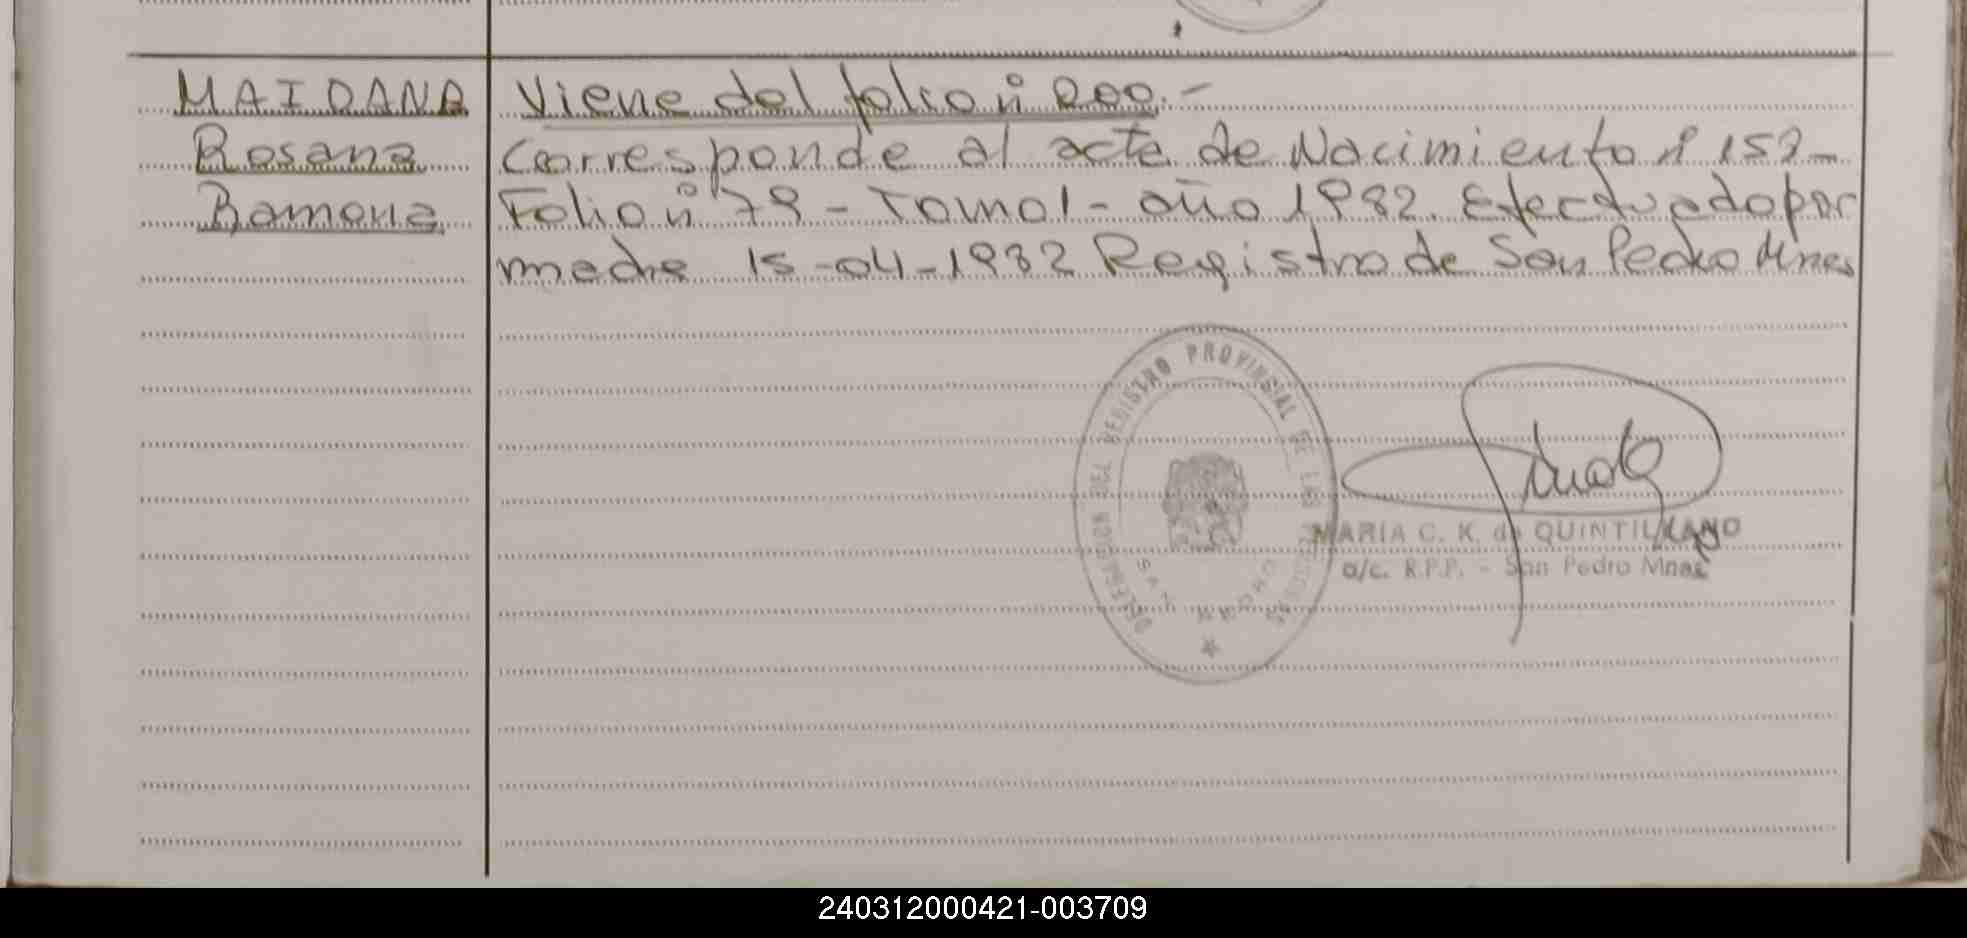 MAIDANA
Rosana
Ramona
Viene del folio nº 200.-
Corresponde al acta de Nacimiento nº 152-
Folio nº 79 - Tomo I - año 1982. Efectuado por
madre 15-04-1982 Registro de San Pedro Mnes
DELEGACION DEL REGISTRO PROVINCIAL DE LAS PERSONAS
SAN PEDRO
MARIA C. K. de QUINTILLANO
a/c. R.P.P. - San Pedro Mnes
240312000421-003709